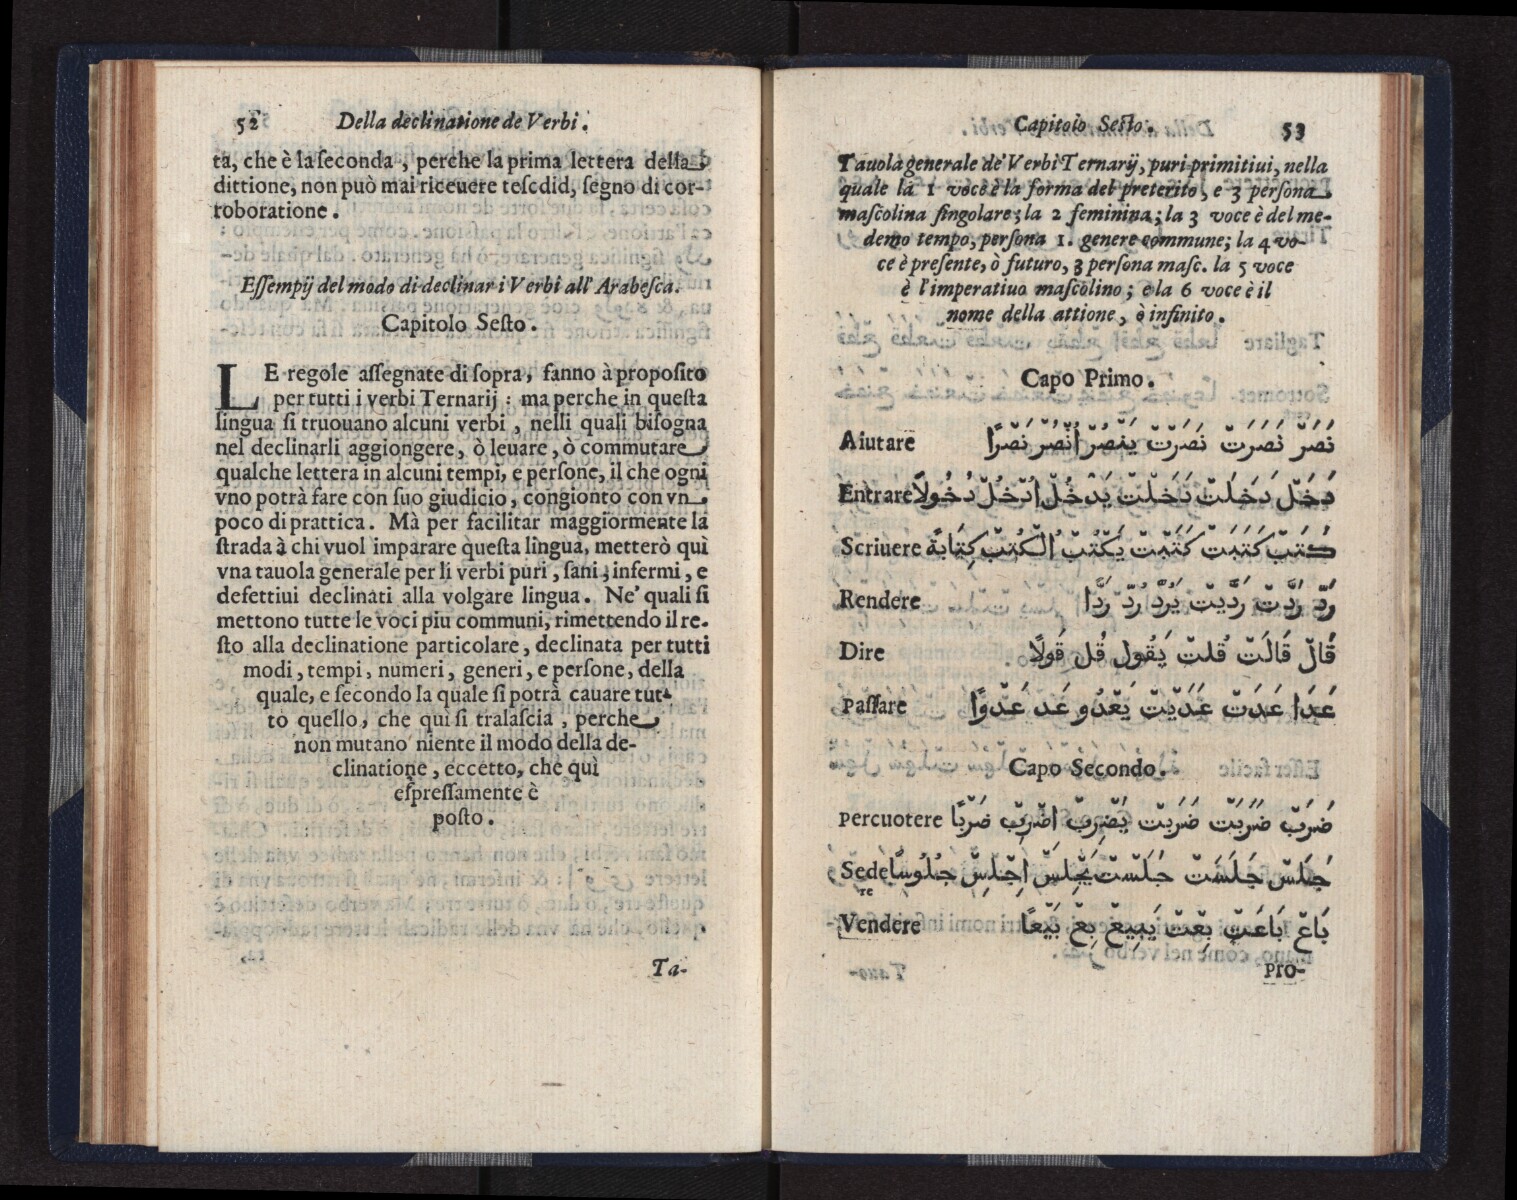 52 Della declinatione de Verbi.
ta, che è la ſeconda, perche la prima lettera della
dittione, non può mai riceuere teſcdid, ſegno di cor-
roboratione.
Eſſempij del modo di declinar i Verbi all' Arabeſca.
Capitolo Seſto.
LE regole aſſegnate di ſopra, fanno à propoſito
per tutti i verbi Ternarij: ma perche in queſta
lingua ſi truouano alcuni verbi, nelli quali biſogna
nel declinarli aggiongere, ò leuare, ò commutare
qualche lettera in alcuni tempi, e perſone, il che ogni
vno potrà fare con ſuo giudicio, congionto con vn
poco di prattica. Mà per facilitar maggiormente la
ſtrada à chi vuol imparare queſta lingua, metterò quì
vna tauola generale per li verbi puri, ſani, infermi, e
defettiui declinati alla volgare lingua. Ne' quali ſi
mettono tutte le voci piu communi, rimettendo il re-
ſto alla declinatione particolare, declinata per tutti
modi, tempi, numeri, generi, e perſone, della
quale, e ſecondo la quale ſi potrà cauare tut-
to quello, che qui ſi tralaſcia, perche
non mutano niente il modo della de-
clinatione, eccetto, che quì
eſpreſſamente è
poſto.
Ta-
Capitolo Seſto. 53
Tauola generale de' Verbi Ternarij, puri primitiui, nella
quale la 1 voce è la forma del preterito, e 3 perſona
maſcolina ſingolare; la 2 feminina; la 3 voce è del me-
demo tempo, perſona 1. genere commune; la 4 vo-
ce è preſente, ò futuro, 3 perſona maſc. la 5 voce
è l'imperatiuo maſcolino; e la 6 voce è il
nome della attione, ò infinito.
Capo Primo.
Aiutare نَصَرْ نَصَرَتْ نَصَرْتْ يَنْصُرْ اُنْصُرْ نَصْرًا
Entrare دَخَلْ دَخَلَتْ دَخَلْتْ يَدْخُلْ اُدْخُلْ دُخُولًا
Scriuere كَتَبْ كَتَبَتْ كَتَبْتْ يَكْتُبْ اُلْكُتْبْ كِتَابَة
Rendere رَدّ رَدَّتْ رَدَّيتْ يَرُدّ رُدّ رَدًّا
Dire قَالْ قَالَتْ قُلتْ يَقُول قُل قَولًا
Paſſare عَدَا عَدَتْ عَدَيْتْ يَعْدُو عَد عَدْوًا
Capo Secondo.
Percuotere ضَرَبْ ضَرَبَتْ ضَرَبْتْ يَضْرِبْ اضْرِبْ ضَرْبًا
Sedere جَلَسْ جَلَسَتْ جَلَسْتْ يَجْلِسْ اِجْلِسْ جُلُوسًا
Vendere بَاعْ بَاعَتْ بِعْتْ يَبِيعْ بِعْ بَيْعًا
Pro-